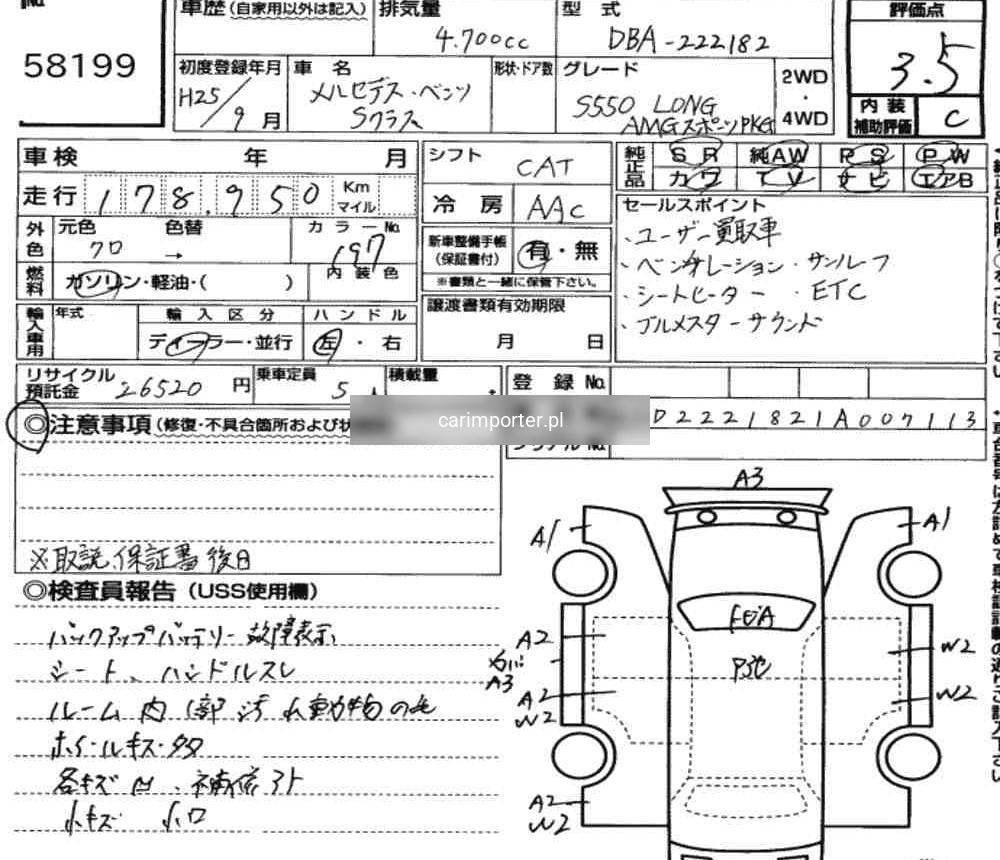 58199
車歴(自家用以外は記入) 排気量 型式 評価点
4.700cc DBA-222182 3.5
初度登録年月 車名 形状・ドア数 グレード 2WD・4WD
H25/9月 メルセデス・ベンツ Sクラス S550 LONG AMGスポーツPKG
内装補助評価 C
車検 年 月 シフト CAT 純正品 SR 純AW PS PW
カワ TV ナビ エアB
走行 178,950 Km マイル 冷房 AAC
外色 元色 クロ 色替 → カラーNo. 197 内装色
新車整備手帳(保証書付) 有・無
※書類と一緒に保管下さい。
燃料 ガソリン・軽油・( )
セールスポイント
・ユーザー買取車
・ベンチレーション・サンルーフ
・シートヒーター ・ETC
・ブルメスターサウンド
輸入車用 年式 輸入区分 ハンドル 譲渡書類有効期限
ディーラー・並行 左・右 月 日
リサイクル預託金 26520円 乗車定員 5人 積載量 登録No.
carimporter.pl
D2221821A007113
シリアルNo.
◎注意事項(修復・不具合箇所および状
※取説、保証書後日
◎検査員報告(USS使用欄)
バックアップバッテリー故障表示
シート、ハンドルスレ
ルーム内 汚れ動物の毛
ホイールキズ・
各キズ凹、補修
小キズ 小凹
A3
A1 A1
A2 W2
A3
A2 W2 W2
A2 W2